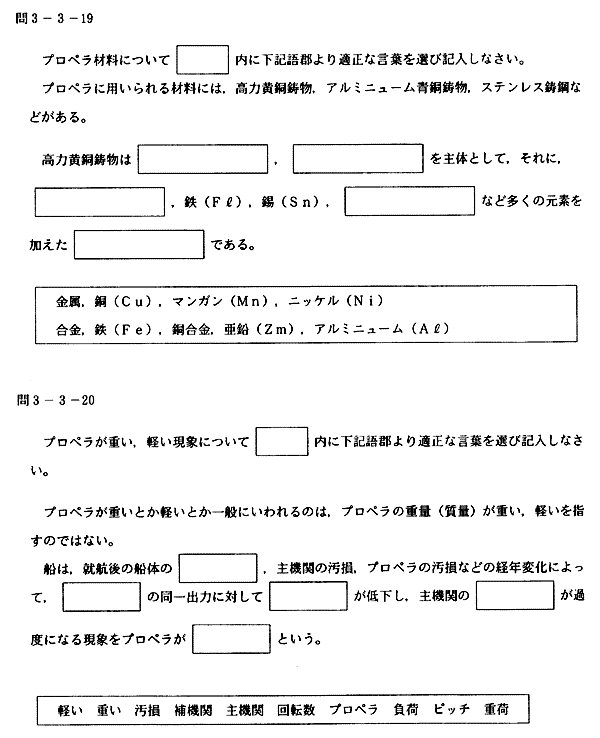 問3-3-19
プロペラ材料について 内に下記語郡より適正な言葉を選び記入しなさい。
プロペラに用いられる材料には，高力黄銅鋳物，アルミニューム青銅鋳物，ステンレス鋳鋼な
どがある。
高力黄銅鋳物は ， を主体として，それに，
，鉄（Fℓ），錫（Sn）， など多くの元素を
加えた である。
金属，銅（Cu），マンガン（Mn），ニッケル（Ni）
合金，鉄（Fe），銅合金，亜鉛（Zm），アルミニューム（Aℓ）
問3-3-20
プロペラが重い，軽い現象について 内に下記語郡より適正な言葉を選び記入しなさ
い。
プロペラが重いとか軽いとか一般にいわれるのは，プロペラの重量（質量）が重い，軽いを指
すのではない。
船は，就航後の船体の ，主機関の汚損，プロペラの汚損などの経年変化によっ
て， の同一出力に対して が低下し，主機関の が過
度になる現象をプロペラが という。
軽い 重い 汚損 補機関 主機関 回転数 プロペラ 負荷 ピッチ 重荷